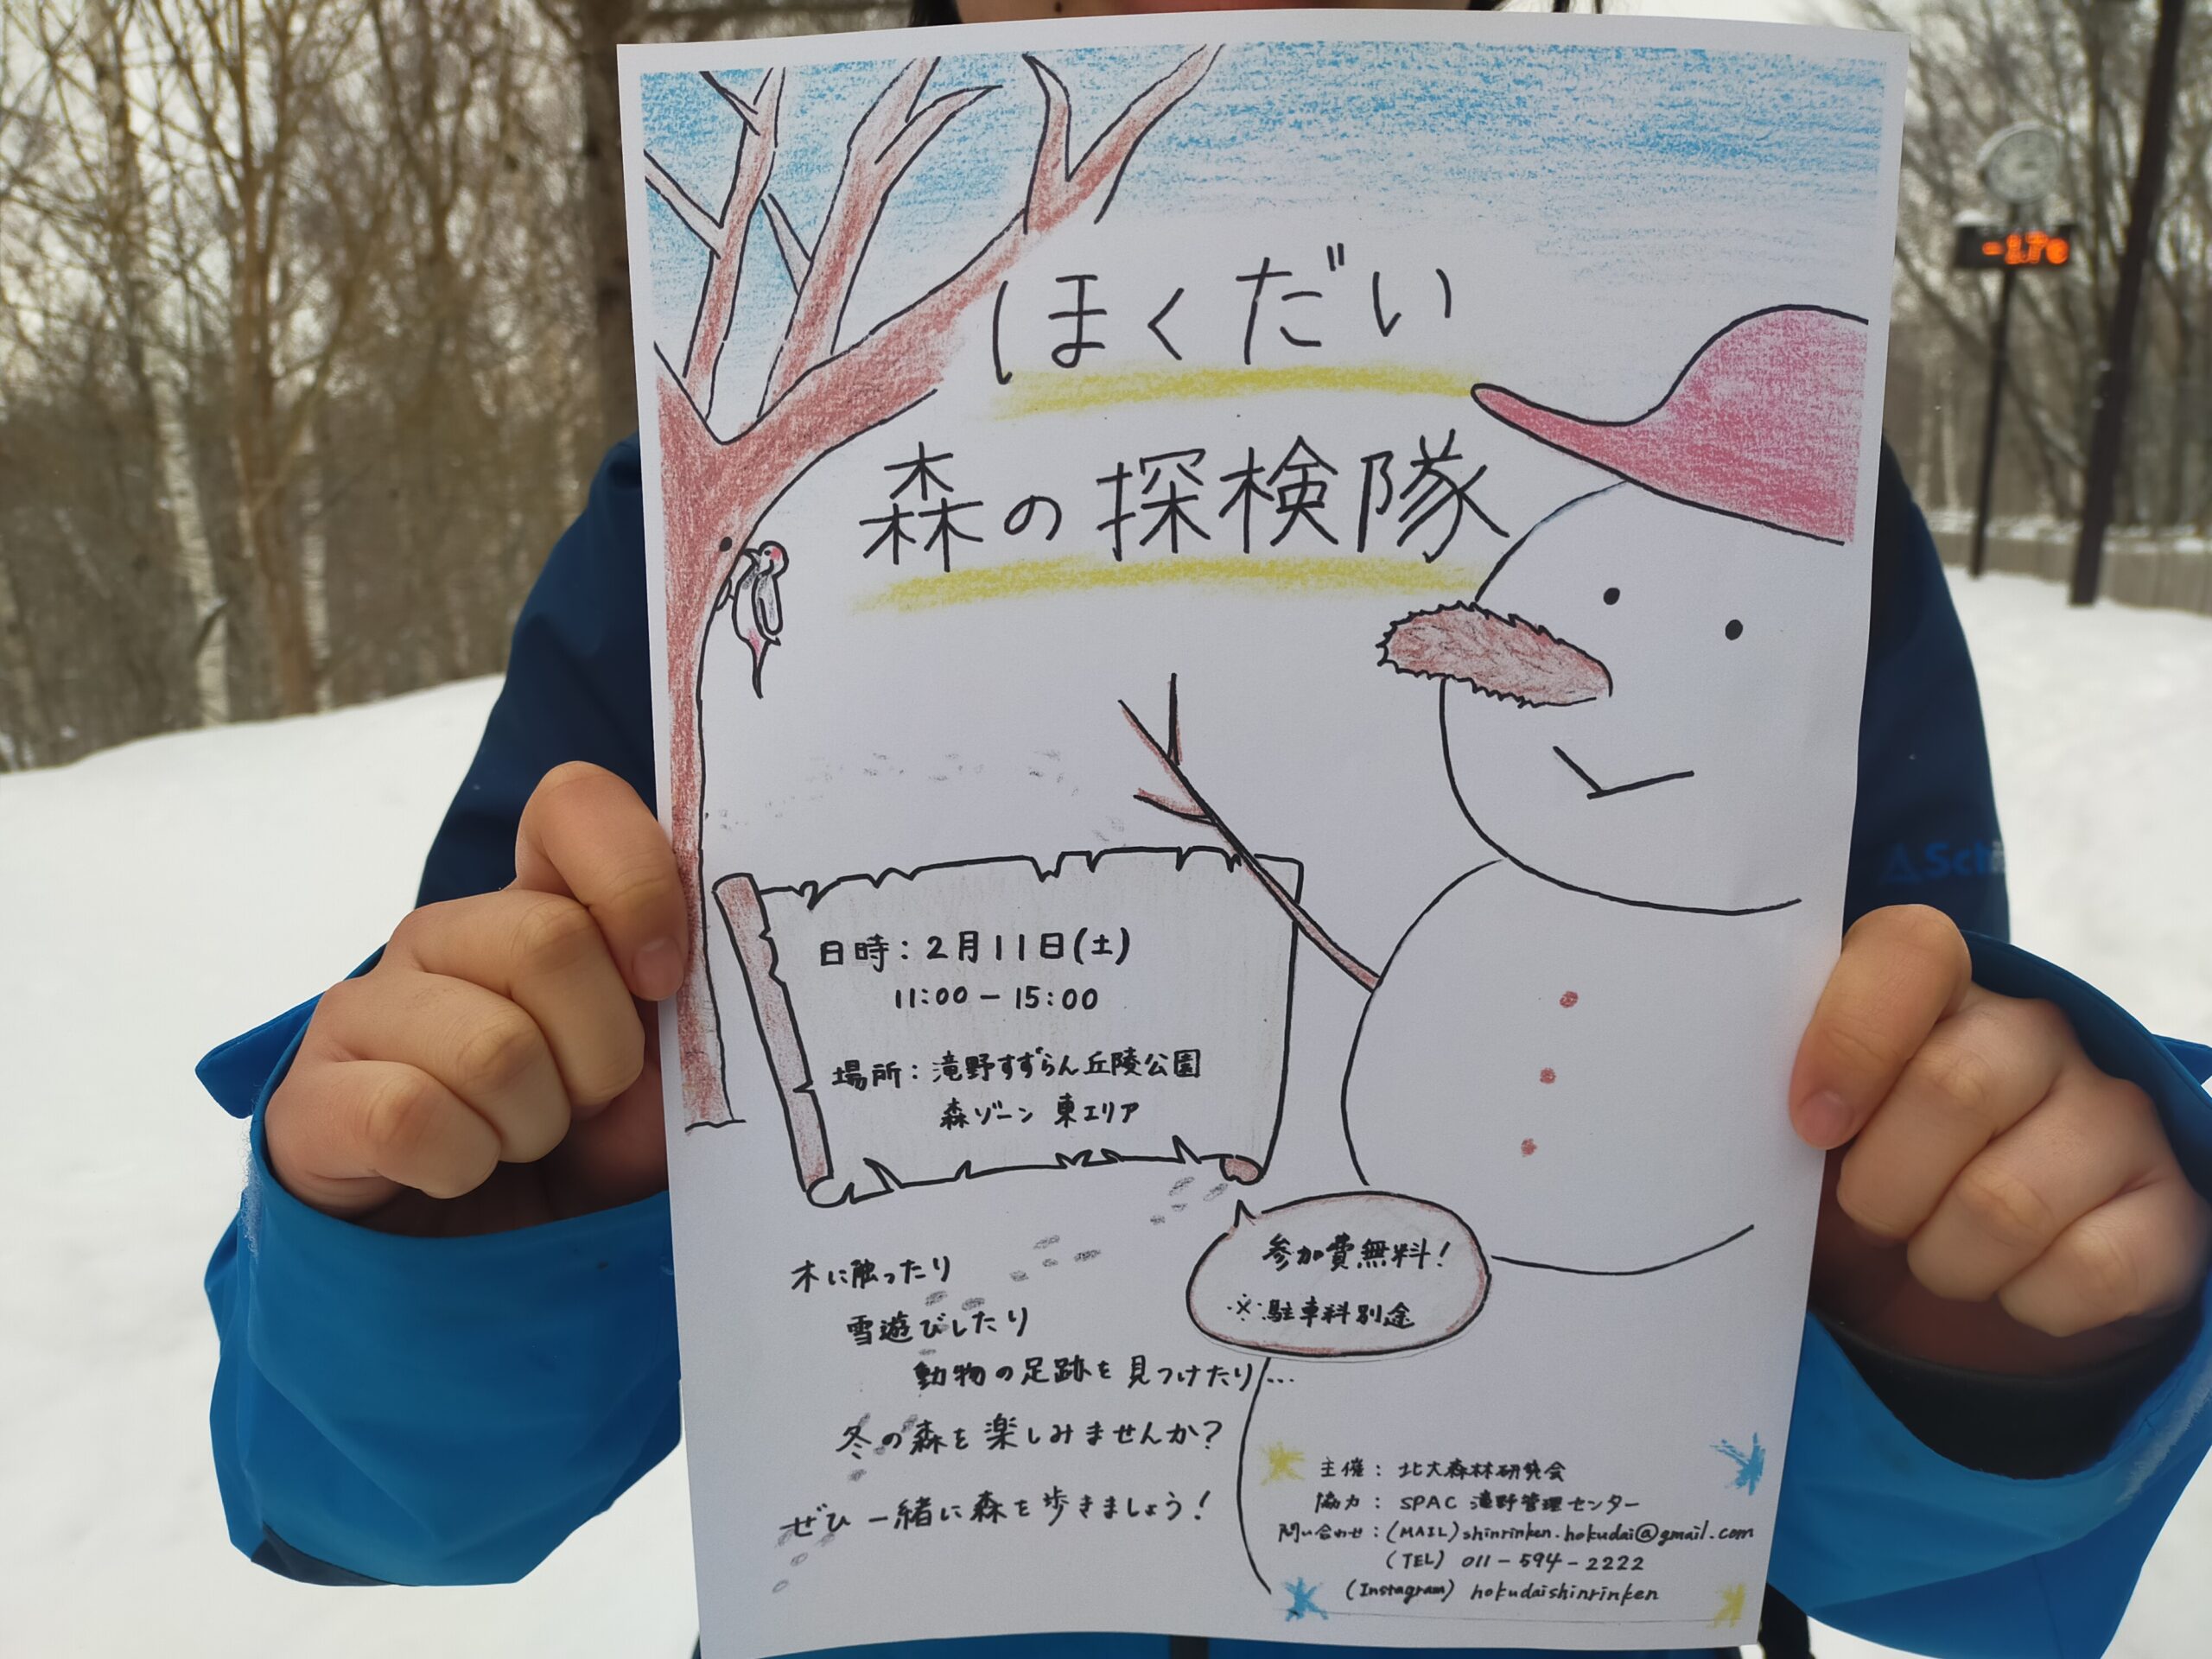 ほくだい
森の探検隊
日時：2月11日(土)
11:00－15:00
場所：滝野すずらん丘陵公園
森ゾーン 東エリア
参加費無料！
※駐車料別途
木に触ったり
雪遊びしたり
動物の足跡を見つけたり…
冬の森を楽しみませんか？
ぜひ一緒に森を歩きましょう！
主催：北大森林研究会
協力：SPAC 滝野管理センター
問い合わせ：(MAIL)shinrinken.hokudai@gmail.com
(TEL) 011-594-2222
(Instagram) hokudaishinrinken